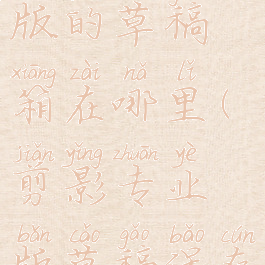 版的草稿
xiāng zài nǎ lǐ
箱在哪里(
jiǎn yǐng zhuān yè
剪影专业
bǎn cǎo gǎo bǎo cún
版草稿保存